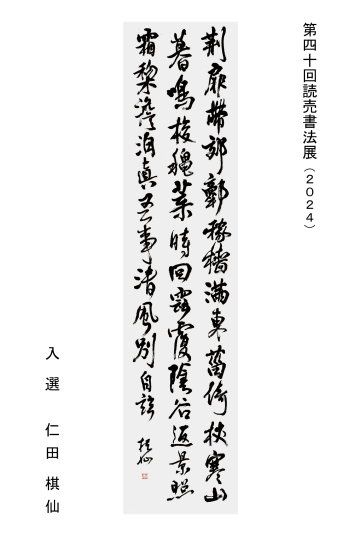 第四十回読売書法展（２０２４）
荊扉帶郊郭稼穡滿東菑倚杖寒山
暮鳴梭穐葉時回雲覆陰谷返景照
霜棃澹泊眞吾事清風別自茲 棋仙
入選 仁田棋仙